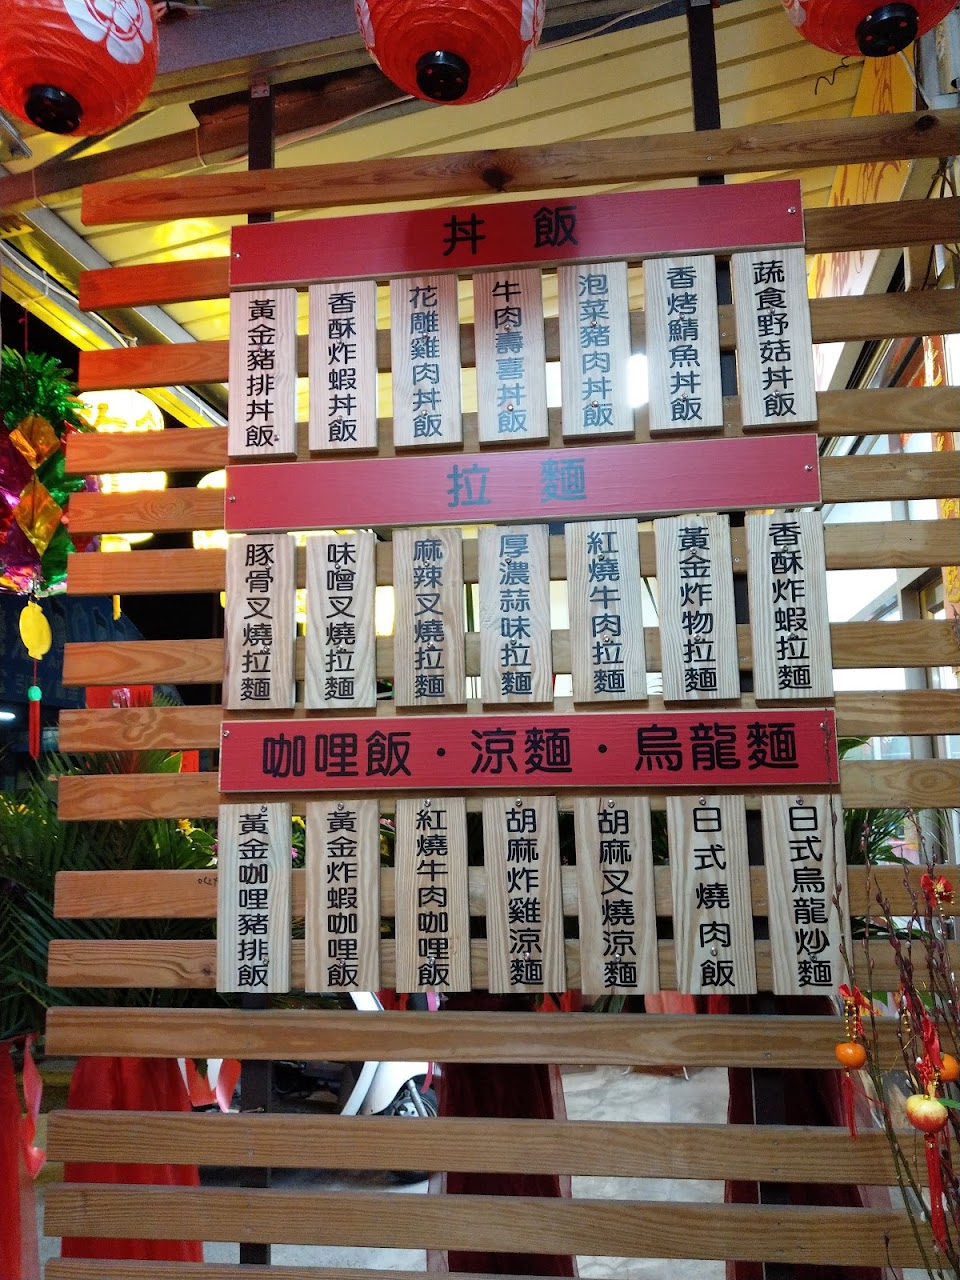 丼飯
黃金豬排丼飯
香酥炸蝦丼飯
花雕雞肉丼飯
牛肉壽喜丼飯
泡菜豬肉丼飯
香烤鯖魚丼飯
蔬食野菇丼飯
拉麵
豚骨叉燒拉麵
味噌叉燒拉麵
麻辣叉燒拉麵
厚濃蒜味拉麵
紅燒牛肉拉麵
黃金炸物拉麵
香酥炸蝦拉麵
咖哩飯・涼麵・烏龍麵
黃金咖哩豬排飯
黃金炸蝦咖哩飯
紅燒牛肉咖哩飯
胡麻炸雞涼麵
胡麻叉燒涼麵
日式燒肉飯
日式烏龍炒麵